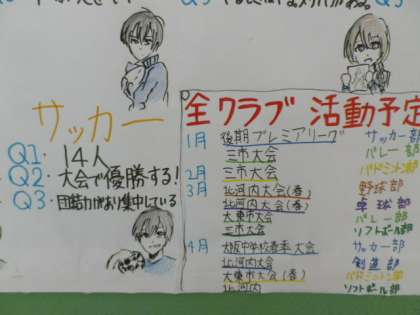 サッカー
Q1・14人
Q2・大会で優勝する!
Q3・団結力があり集中している
全クラブ 活動予定
1月 後期プレミアリーグ サッカー部
三市大会 バレー部
2月 三市大会 バドミントン部
3月 北河内大会(春) 野球部
北河内大会(春) 卓球部
大東市大会 バレー部
三市大会 ソフトボール部
4月 大阪中学校春季大会 サッカー部
北河内大会 剣道部
大東市大会(春) バドミントン部
北河内 ソフトボール部